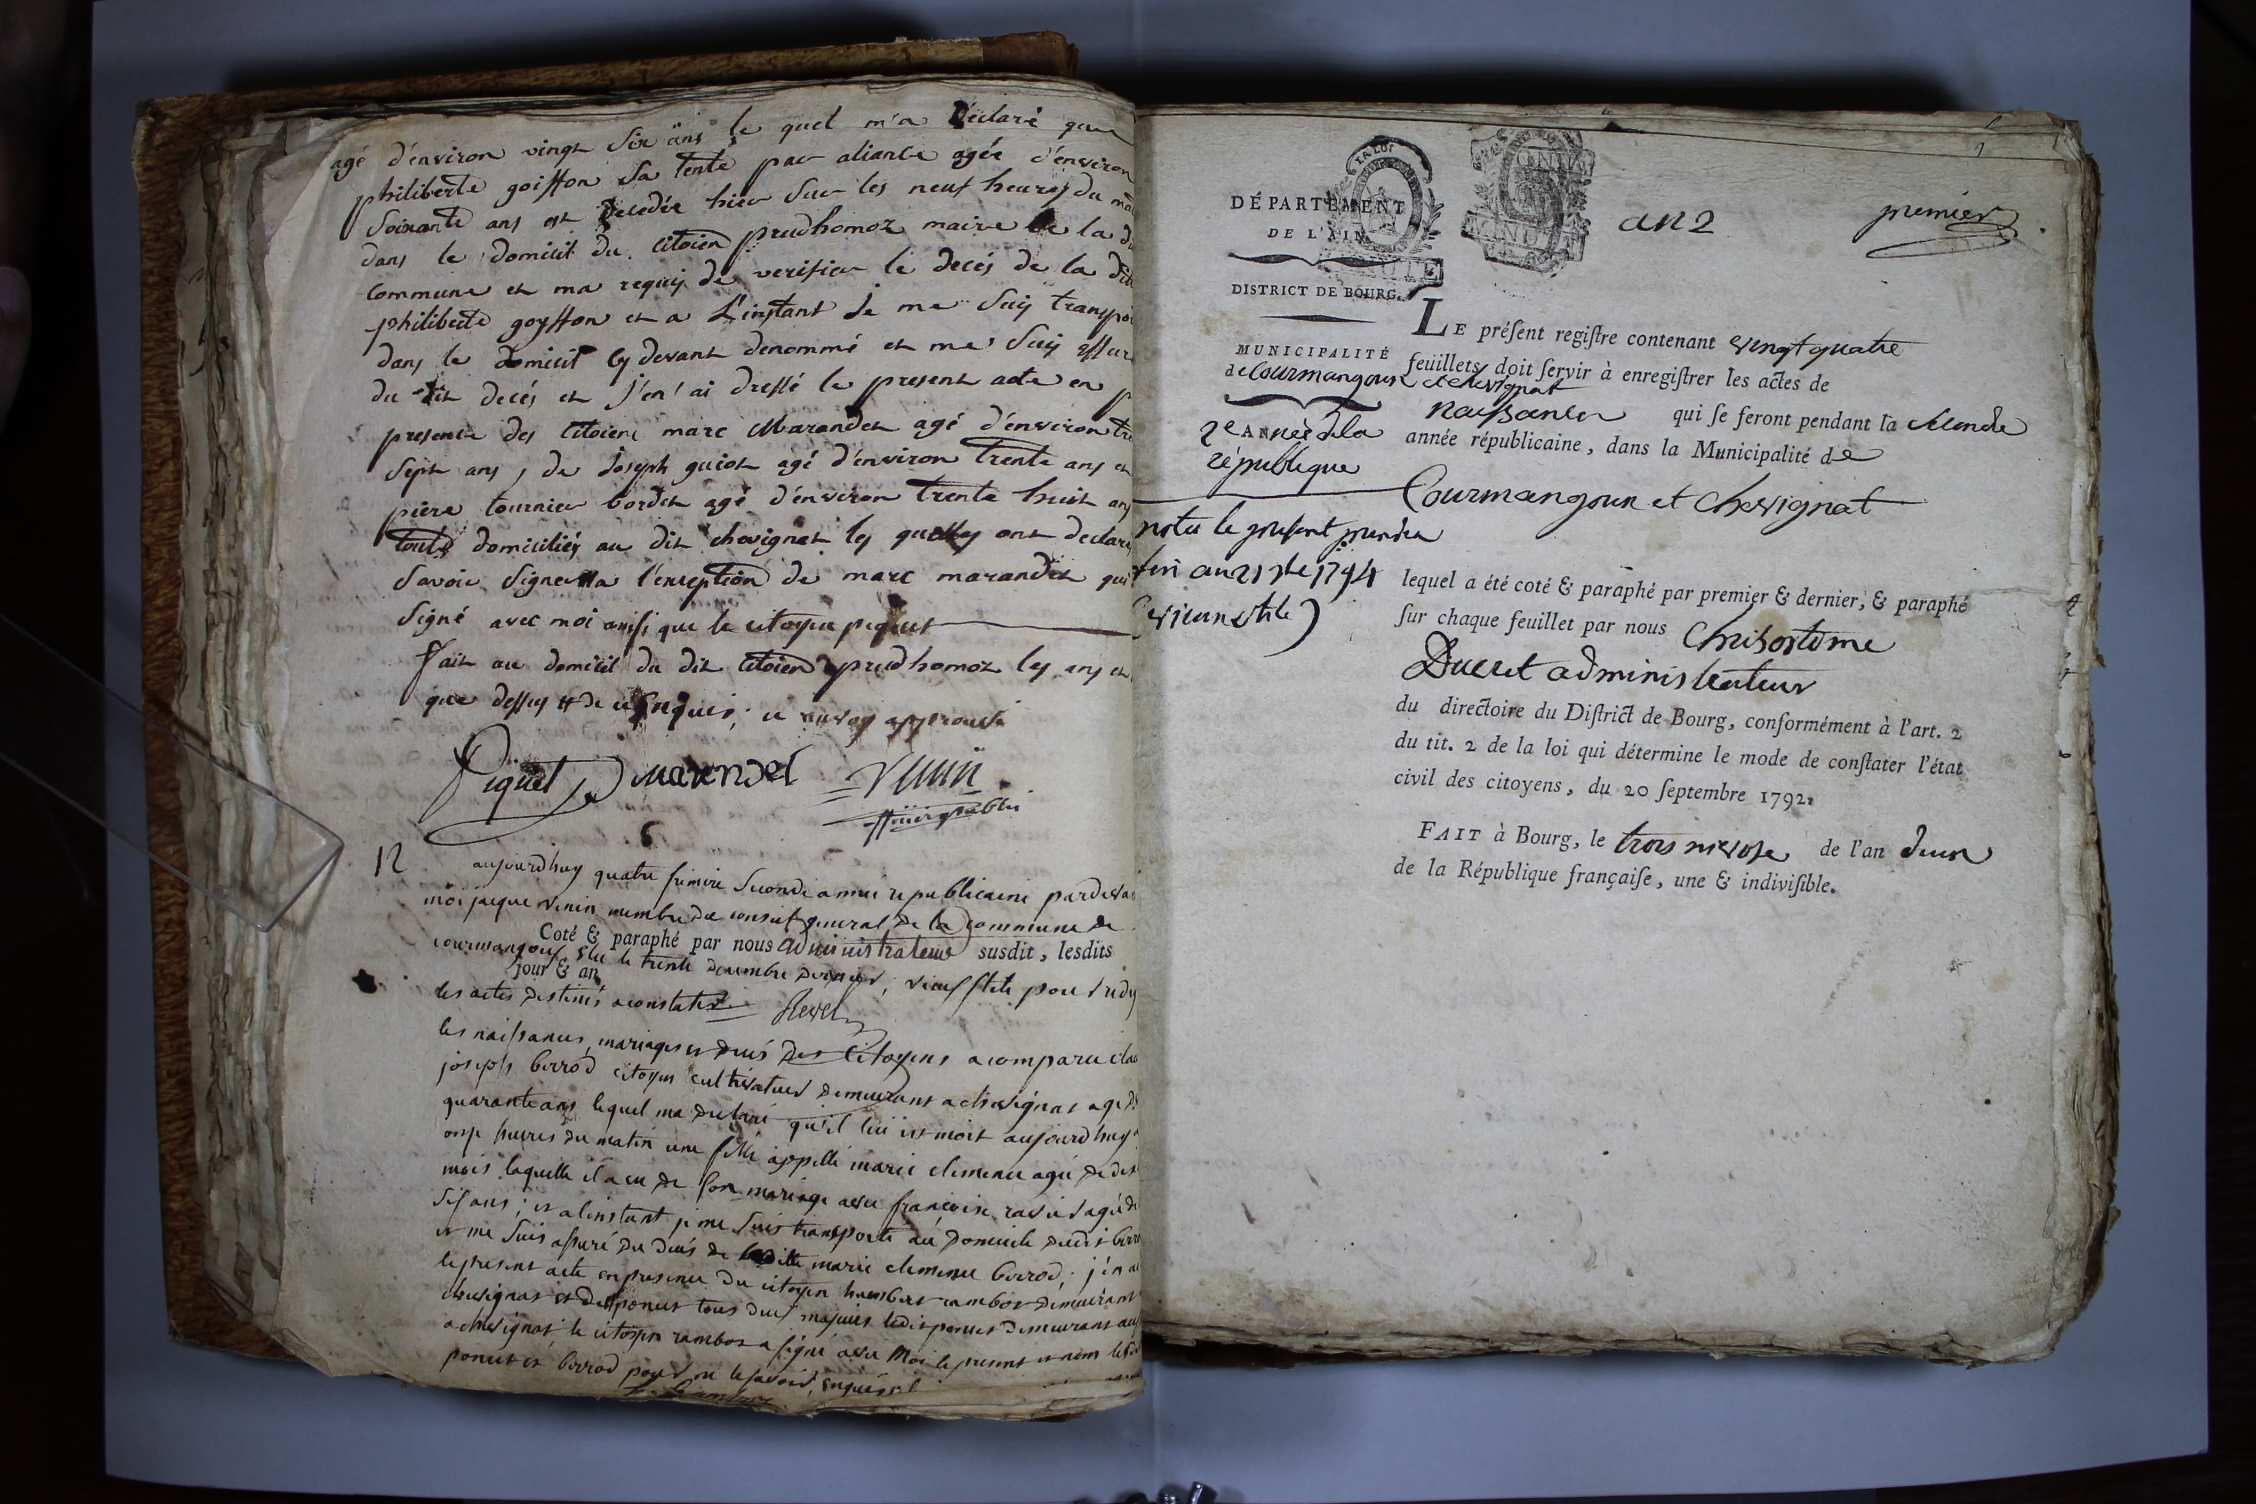 agé d'environ vingt six ans le quel m'a Déclaré que
philiberte goiffon sa tente par aliance agée d'environ
soixante ans est decedée hier sur les neuf heures du
dans le domicil du citoien prudhomoz maire de la
commune et ma requis de verifier le decés de la dite
philiberte goyffon et a L'instant Je me suis
dans le domicil cy devant denommé et me suis
du dit decés et j'en ai dressé le present acte en
presence des citoiens marc Marandet agé d'environ
sept ans, de Joseph guiot agé d'environ trente ans et
piere tournier bordet agé d'environ trente huit ans
touts domiciliés au dit chevignat les quelles ont declaré
savoir signer a l'exception de marc marandet qui
signé avec moi ainsi que le citoyen piquet
fait au domicil du dit citoien prudhomoz les ans et
que dessus et de ce enquis; ce renvoy approuvé
Piquet Marendet Venin
officier public
6
12
aujourdhuy quatre frimire seconde annee republicaine pardevant
moi jacque venin membre du conseil general de la commune de
Coté & paraphé par nous administrateur susdit, lesdits
courmangoux elu le trente decembre dernier, vieux stile pour
jour & an
les actes destinés a constater
les naissances, mariages et decés des citoyens a comparu
joseph berrod citoyen cultivateur demeurant a chevignat agé de
quarante ans lequel ma declaré qu'il lui est mort aujourdhuy
onze heures du matin une fille appellé marie clemence agée de
mois laquelle il a eu de son mariage avec francoise agée de
six ans; et a linstant je me suis transporté au domicile dudit
et me suis assuré du decés de ladite marie clemence berrod; j'en ai
le present acte en presence du citoyen humbert rambot demeurant
chevignat et de ponct tous deux majeurs demeurant au
a chevignat le citoyen rambot a signé avec moi le present et non
ponct et berrod pour ne le savoir, enquis
DÉPARTEMENT
DE L'AIN
LA LOI
an 2
premier
DISTRICT DE BOURG.
MUNICIPALITÉ
de Courmangoux et chevignat
2e ANNÉE de la
république
LE préſent regiſtre contenant vingt quatre
feuillets doit ſervir à enregiſtrer les actes de
naissances qui ſe feront pendant la seconde
année républicaine, dans la Municipalité de
Courmangoux et Chevignat
le present
1794
vieux stile)
lequel a été coté & paraphé par premier & dernier, & paraphé
ſur chaque feuillet par nous Chrisostome
Ducret administrateur
du directoire du Diſtrict de Bourg, conformément à l'art. 2
du tit. 2 de la loi qui détermine le mode de conſtater l'état
civil des citoyens, du 20 ſeptembre 1792.
FAIT à Bourg, le trois nivose de l'an deux
de la République françaiſe, une & indiviſible.